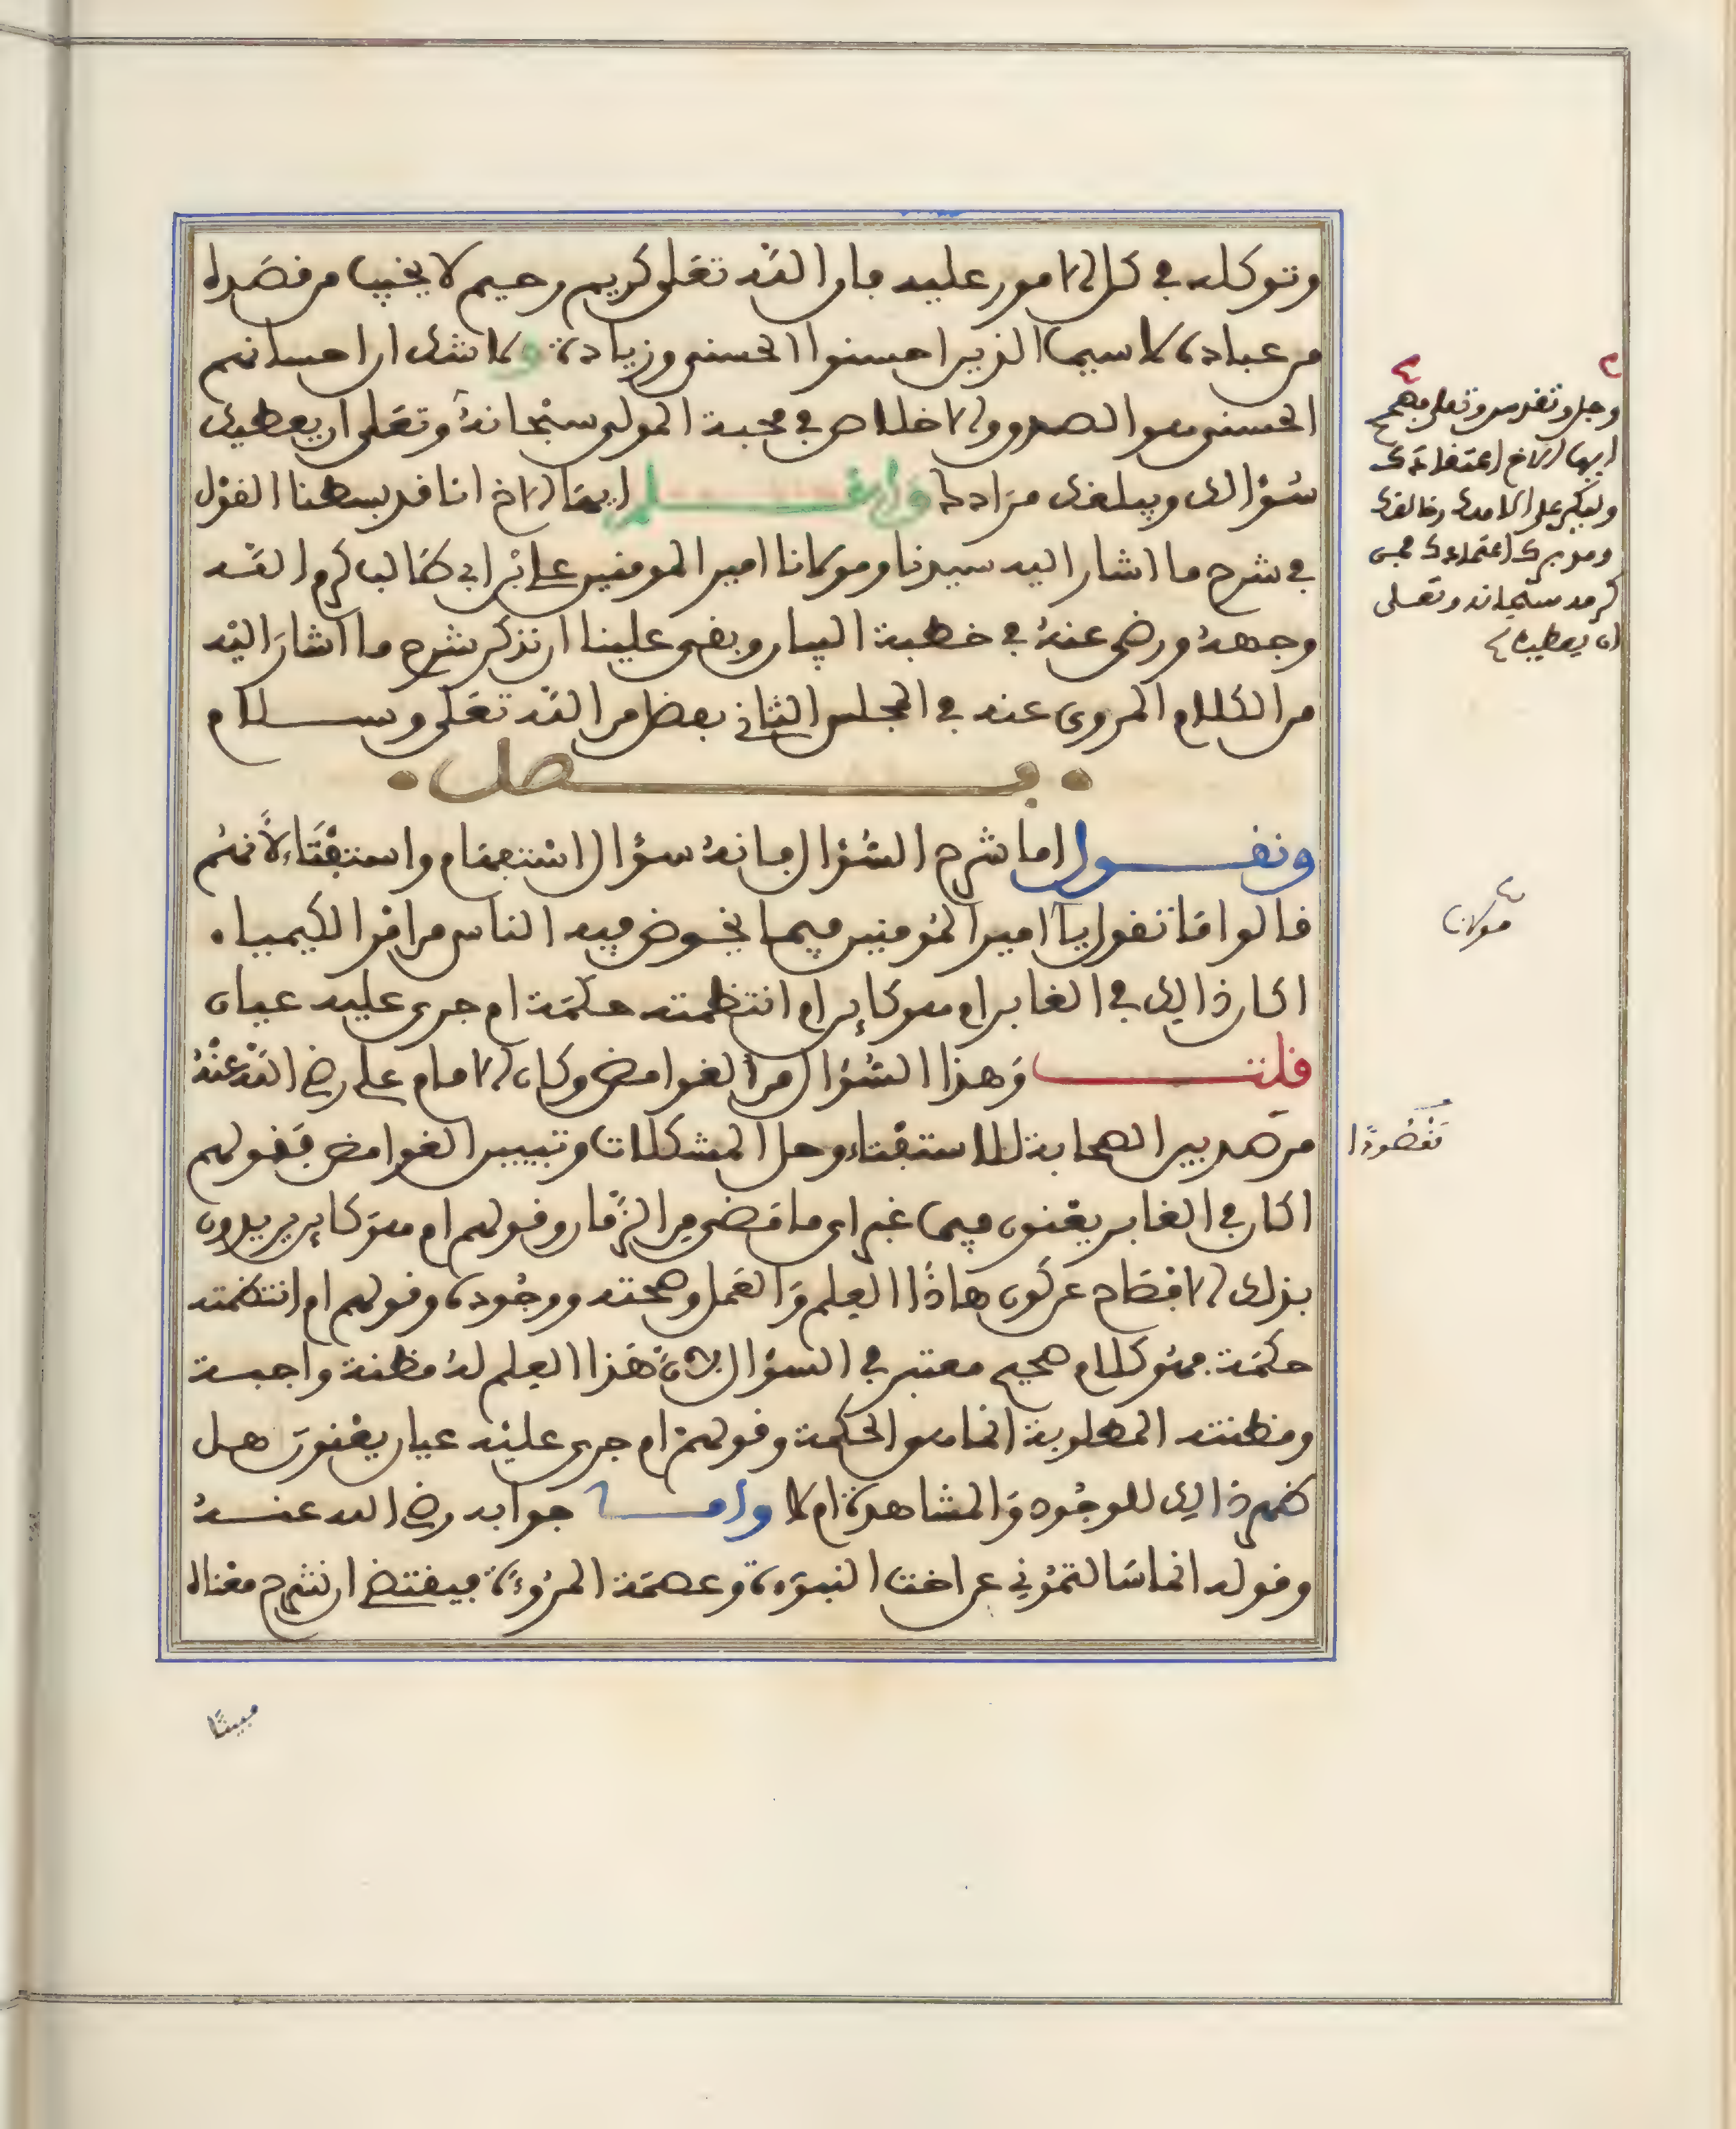 وتوكله في كل الامور عليه فان الله تعلى كريم رحيم لا يخيب من قصده
من عباده لا سيما الذين احسنوا الحسنى وزيادة ولا شك ان احسانهم
الحسنى هو الصدق والاخلاص في محبة المولى سبحانه وتعلى ان يعطيك
سؤالك ويبلغك مرادك واعلم ايها الاخ انا قد بسطنا القول
في شرح ما اشار اليه سيدنا ومولانا امير المومنين علي بن ابي طالب كرم الله
وجهه ورضي عنه في خطبة البيان وبقي علينا ان نذكر شرح ما اشار اليه
من الكلام المروي عنه في المجلس الثاني بفضل من الله تعلى وسلام
فصل
ونقول اما شرح السؤال فانه سؤال استفهام واستفتاء لأنهم
قالوا ما تقول يا امير المؤمنين فيما يخوض فيه الناس من امر الكيمياء
اكان ذالك في الغابر ام هو كاين ام انتظمته حكمة ام جرى عليه عيان
قلت وهذا السؤال من الغوامض وكان الامام علي رضي الله عنه
من بين الصحابة للاستفتاء وحل المشكلات وتبيين الغوامض فقولهم
اكان في الغابر يعنون فيما غبر اي ما مضى من الزمان وقولهم ام هو كاين يريدون
بذلك الافصاح عن كون هاذا العلم والعمل وصحته ووجوده وقولهم ام انتظمته
حكمة فهو كلام صحيح معتبر في السؤال لان هذا العلم له مظنة واجبة
ومظنته المطلوبة انما هو الحكمة وقولهم ام جرى عليه عيان يعنون هل
ظهر ذالك للوجود والمشاهدة ام لا واما جوابه رضي الله عنه
وقوله انما سالتموني عن اخت النبوة وعصمة المروءة فيقتضي ان نشرح معناه
وجل وتقدس وتعلى فهمم
ايها الاخ اعتقادك
وليكن على الله
اعتمادك فمن
كرمه سبحانه وتعلى
ان يعطيك
هو كان
مقصودا
مبينا